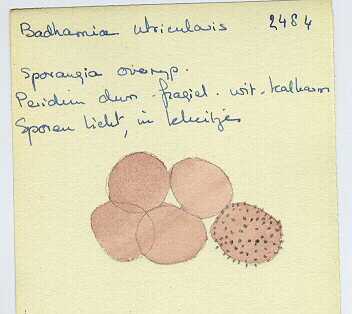 Badhamia utricularis 2484
Sporangia overryp.
Peridium dun - fragiel - wit - kalkarm
Sporen licht, in kluitjes